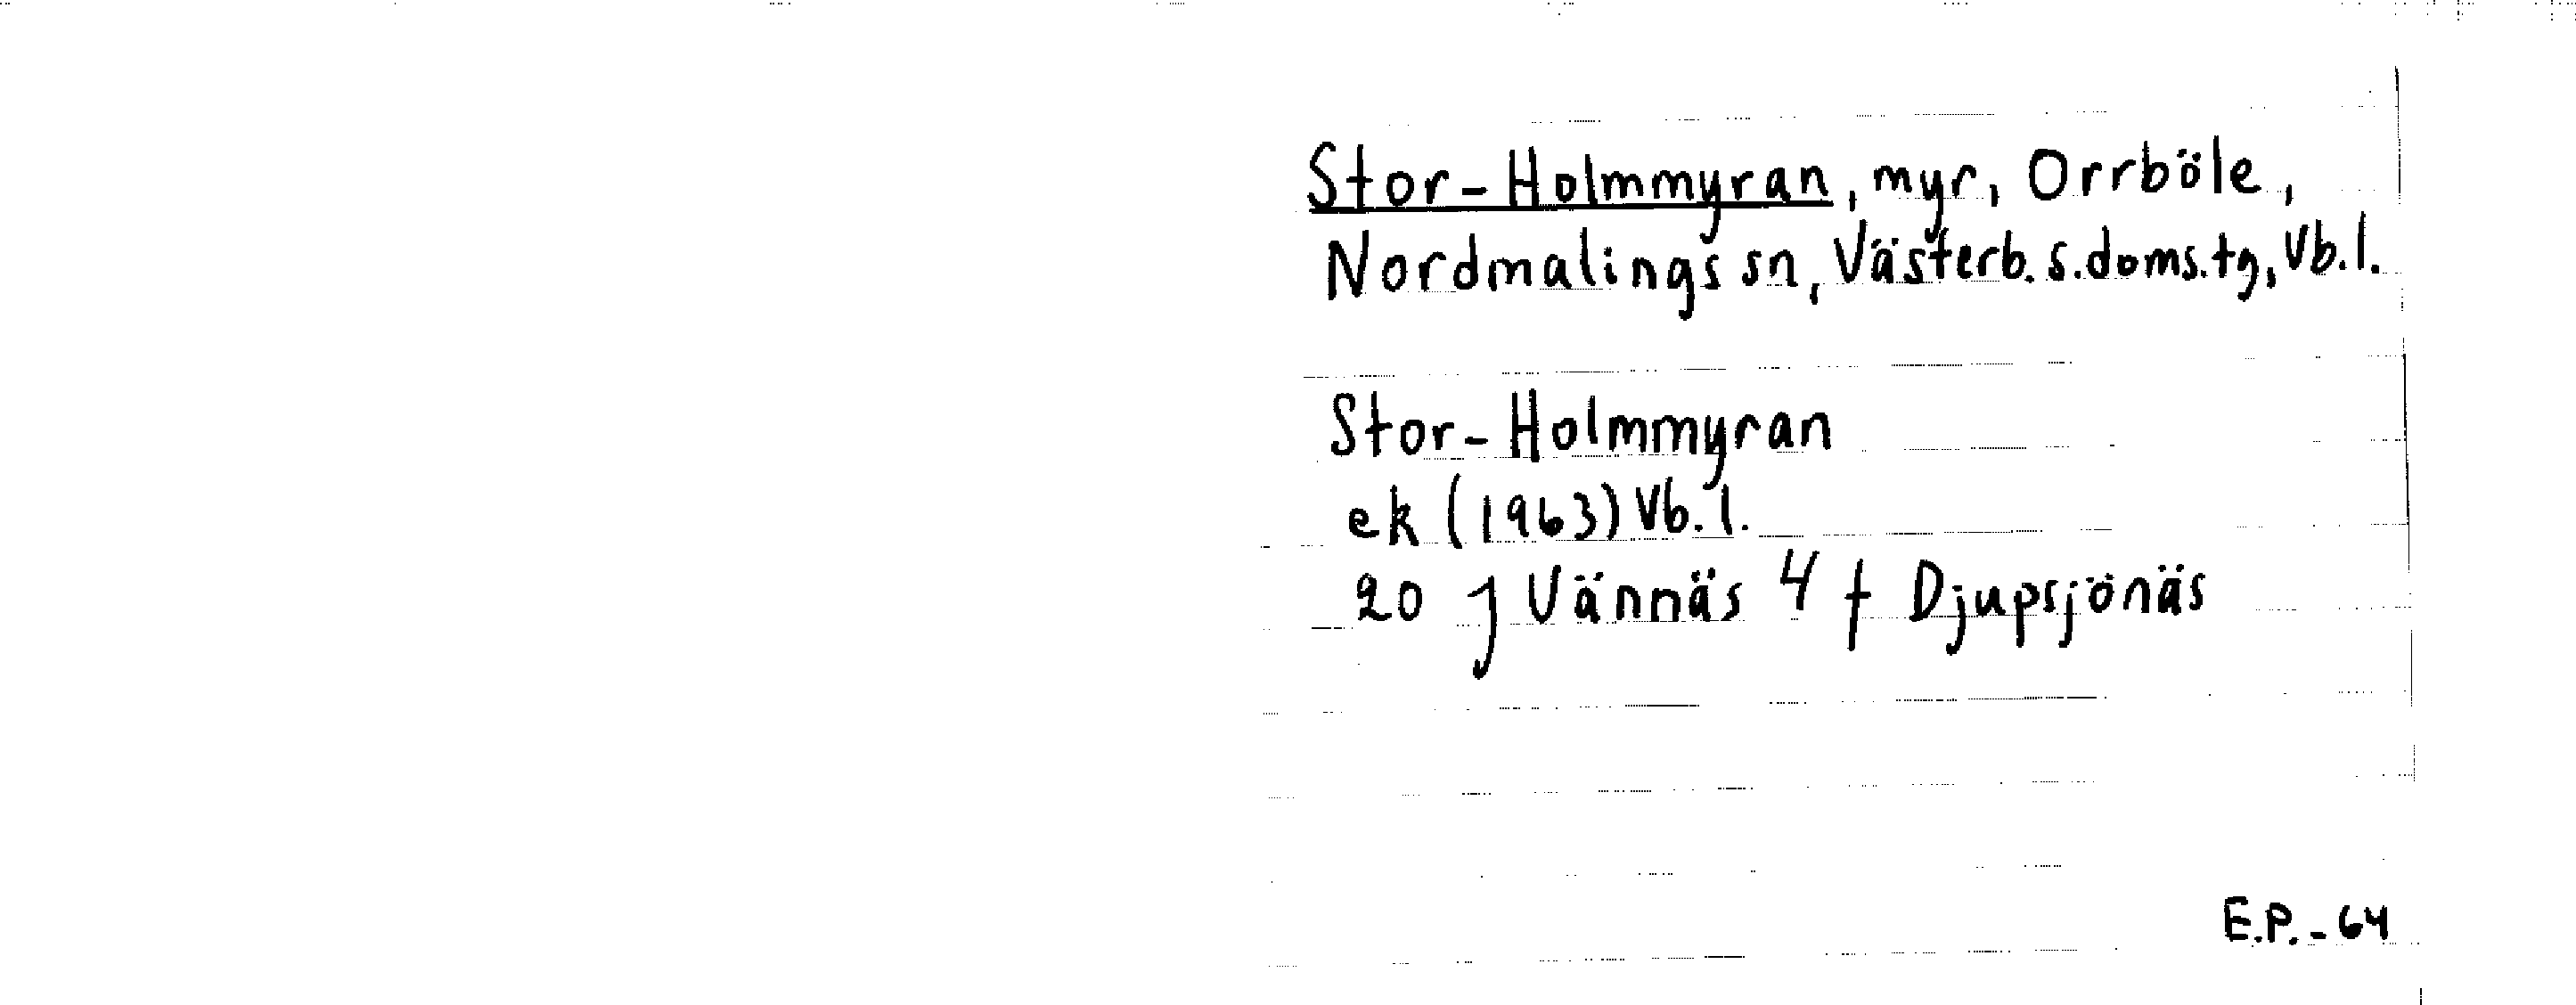 Stor-Holmmyran, myr, Orrböle,
Nordmalings sn, Västerb. s. doms. tg, Vb. l.
Stor-Holmmyran
ek (1963) Vb. l.
20 J Vännäs 4 f Djupsjönäs
E.P. - 64